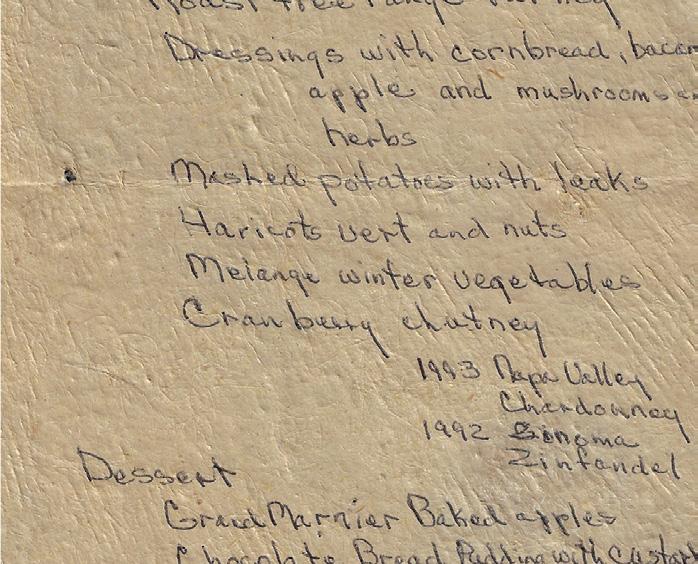 Roast free range Turkey
Dressings with cornbread, bacon
apple and mushrooms
herbs
Mashed potatoes with leaks
Haricots vert and nuts
Melange winter vegetables
Cranberry chutney
1993 Napa Valley
Chardonney
1992 Sinoma
Zinfandel
Dessert
Grand Marnier Baked apples
Chocolate Bread Pudding with custard